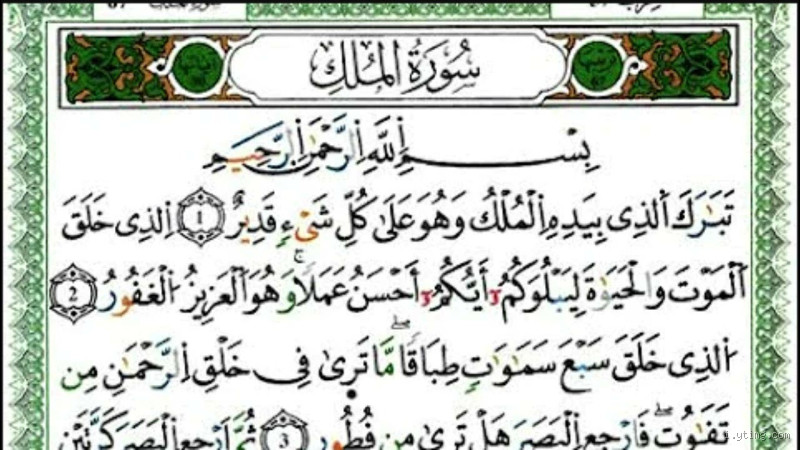 سُورَةُ الْمُلْكِ
بِسْمِ اِللَّهِ اِلرَّحْمَٰنِ اِلرَّحِيمِ
تَبَٰرَكَ اَلذِے بِيَدِهِ اِلْمُلْكُ وَهُوَ عَلَىٰ كُلِّ شَےْءٖ قَدِيرٌ 1 اِلذِے خَلَقَ
اَلْمَوْتَ وَالْحَيَوٰةَ لِيَبْلُوَكُمُۥٓ أَيُّكُمُۥٓ أَحْسَنُ عَمَلاٗ وَهُوَ اَلْعَزِيزُ اُلْغَفُورُ 2
اُلذِے خَلَقَ سَبْعَ سَمَٰوَٰتٖ طِبَاقاٗ مَّا تَرَىٰ فِے خَلْقِ اِلرَّحْمَٰنِ مِن
تَفَٰوُتٖ فَارْجِعِ اِلْبَصَرَ هَلْ تَرَىٰ مِن فُطُورٖ 3 ثُمَّ اَرْجِعِ اِلْبَصَرَ كَرَّتَيْنِ